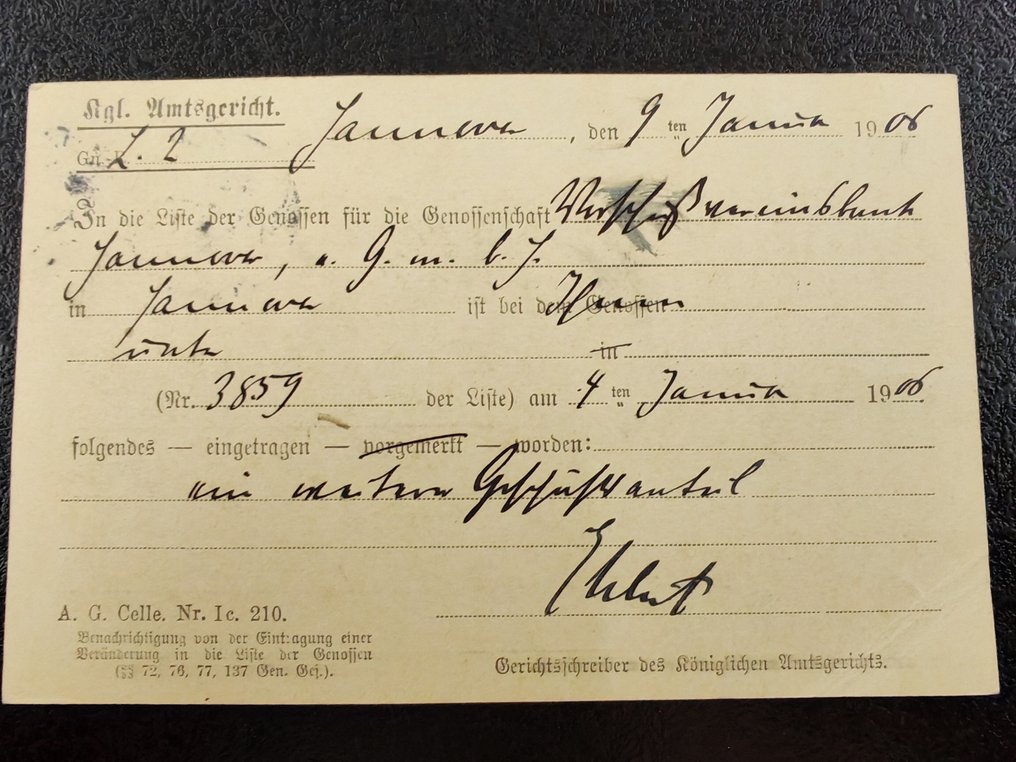 Kgl. Amtsgericht. Hannover, den 9 ten Januar 1906
Gn. R. L. 2
In die Liste der Genossen für die Genossenschaft Vorschußvereinsbank
Hannover, e. G. m. b. H.
in Hannover ist bei dem Genossen Ihnen
unter in
(Nr. 3859 der Liste) am 4 ten Januar 1906
folgendes — eingetragen — vorgemerkt — worden:
ein weiterer Geschäftsanteil
A. G. Celle. Nr. Ic. 210.
Benachrichtigung von der Eintragung einer
Veränderung in die Liste der Genossen
(§§ 72, 76, 77, 137 Gen. Ges.).
Gerichtsschreiber des Königlichen Amtsgerichts.